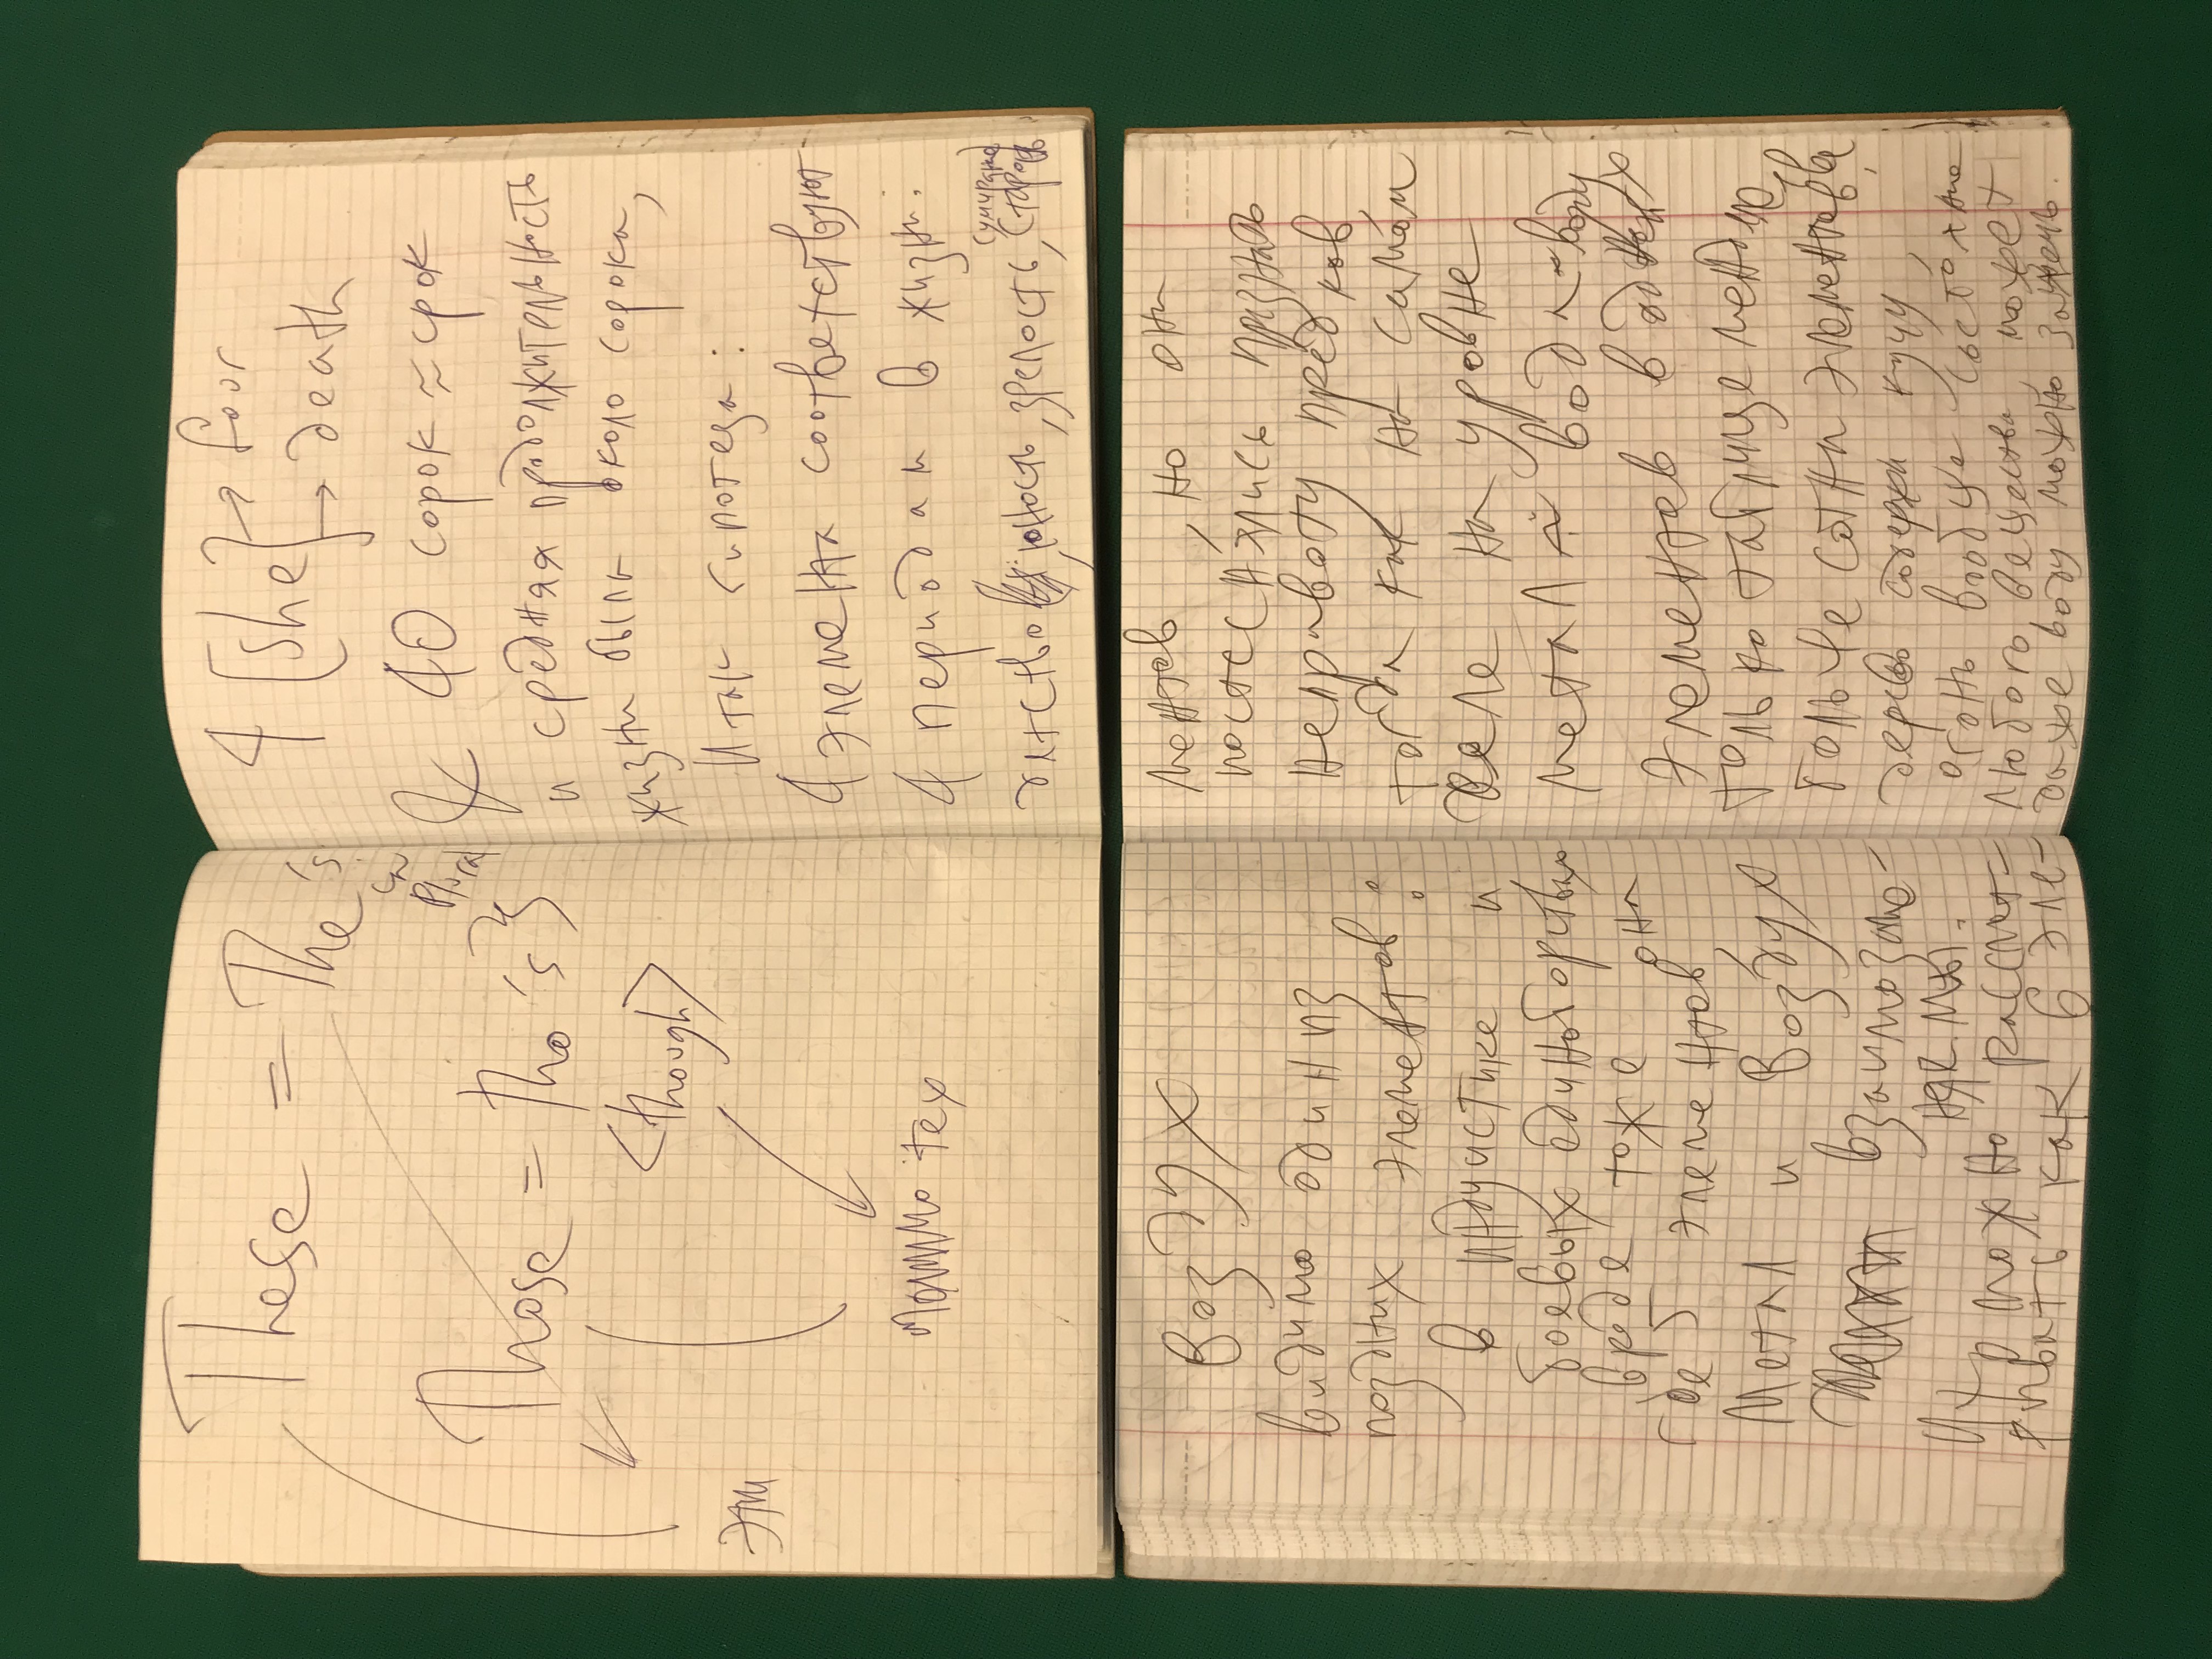 These = The's
in
Plural
Those = tho's}
<though>
эти
помимо тех
4 [she} → four
→ death
& 40 сорок ≈ срок
и средняя продолжительность
жизни была около сорока,
Итак гипотеза:
4 элемента соответствуют
4 периодам в жизни:
(умирание)
детство, юность, зрелость, старость
Воздух
видимо один из
поздних элементов:
в индуистике и
боевых единоборствах
вроде тоже она
где 5 элементов,
Метал и Воздух
взаимозаме-
няемы.
Их можно рассмат-
ривать как 6 эле-
ментов, но они
постеснялись признать
неправоту предков
тогда как на самом
деле на уровне
метал ~ вода ~ воду
Элементов в одних
только таблице менделе
больше сотни элементов,
дерево содержи кучу,
огонь вообще состояние
любого вещества, может
даже воду можно зажечь.